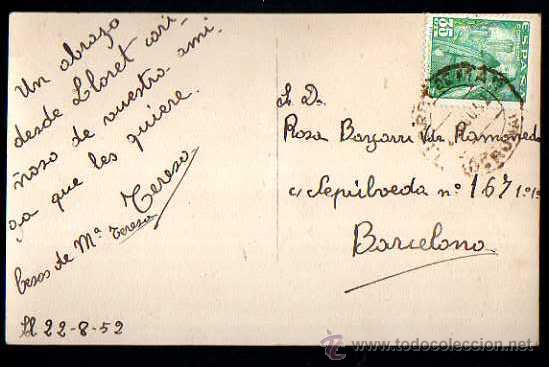 Un abrazo
desde Lloret cari-
ñoso de vuestra ami-
ga que les quiere.
Teresa
besos de Mª Teresa
Ll 22-8-52
25
CTS
ESPAÑA
S. D.
Rosa Vda. Ramoneda
c/ Sepúlveda nº 167 1º 1ª
Barcelona
www.todocoleccion.net